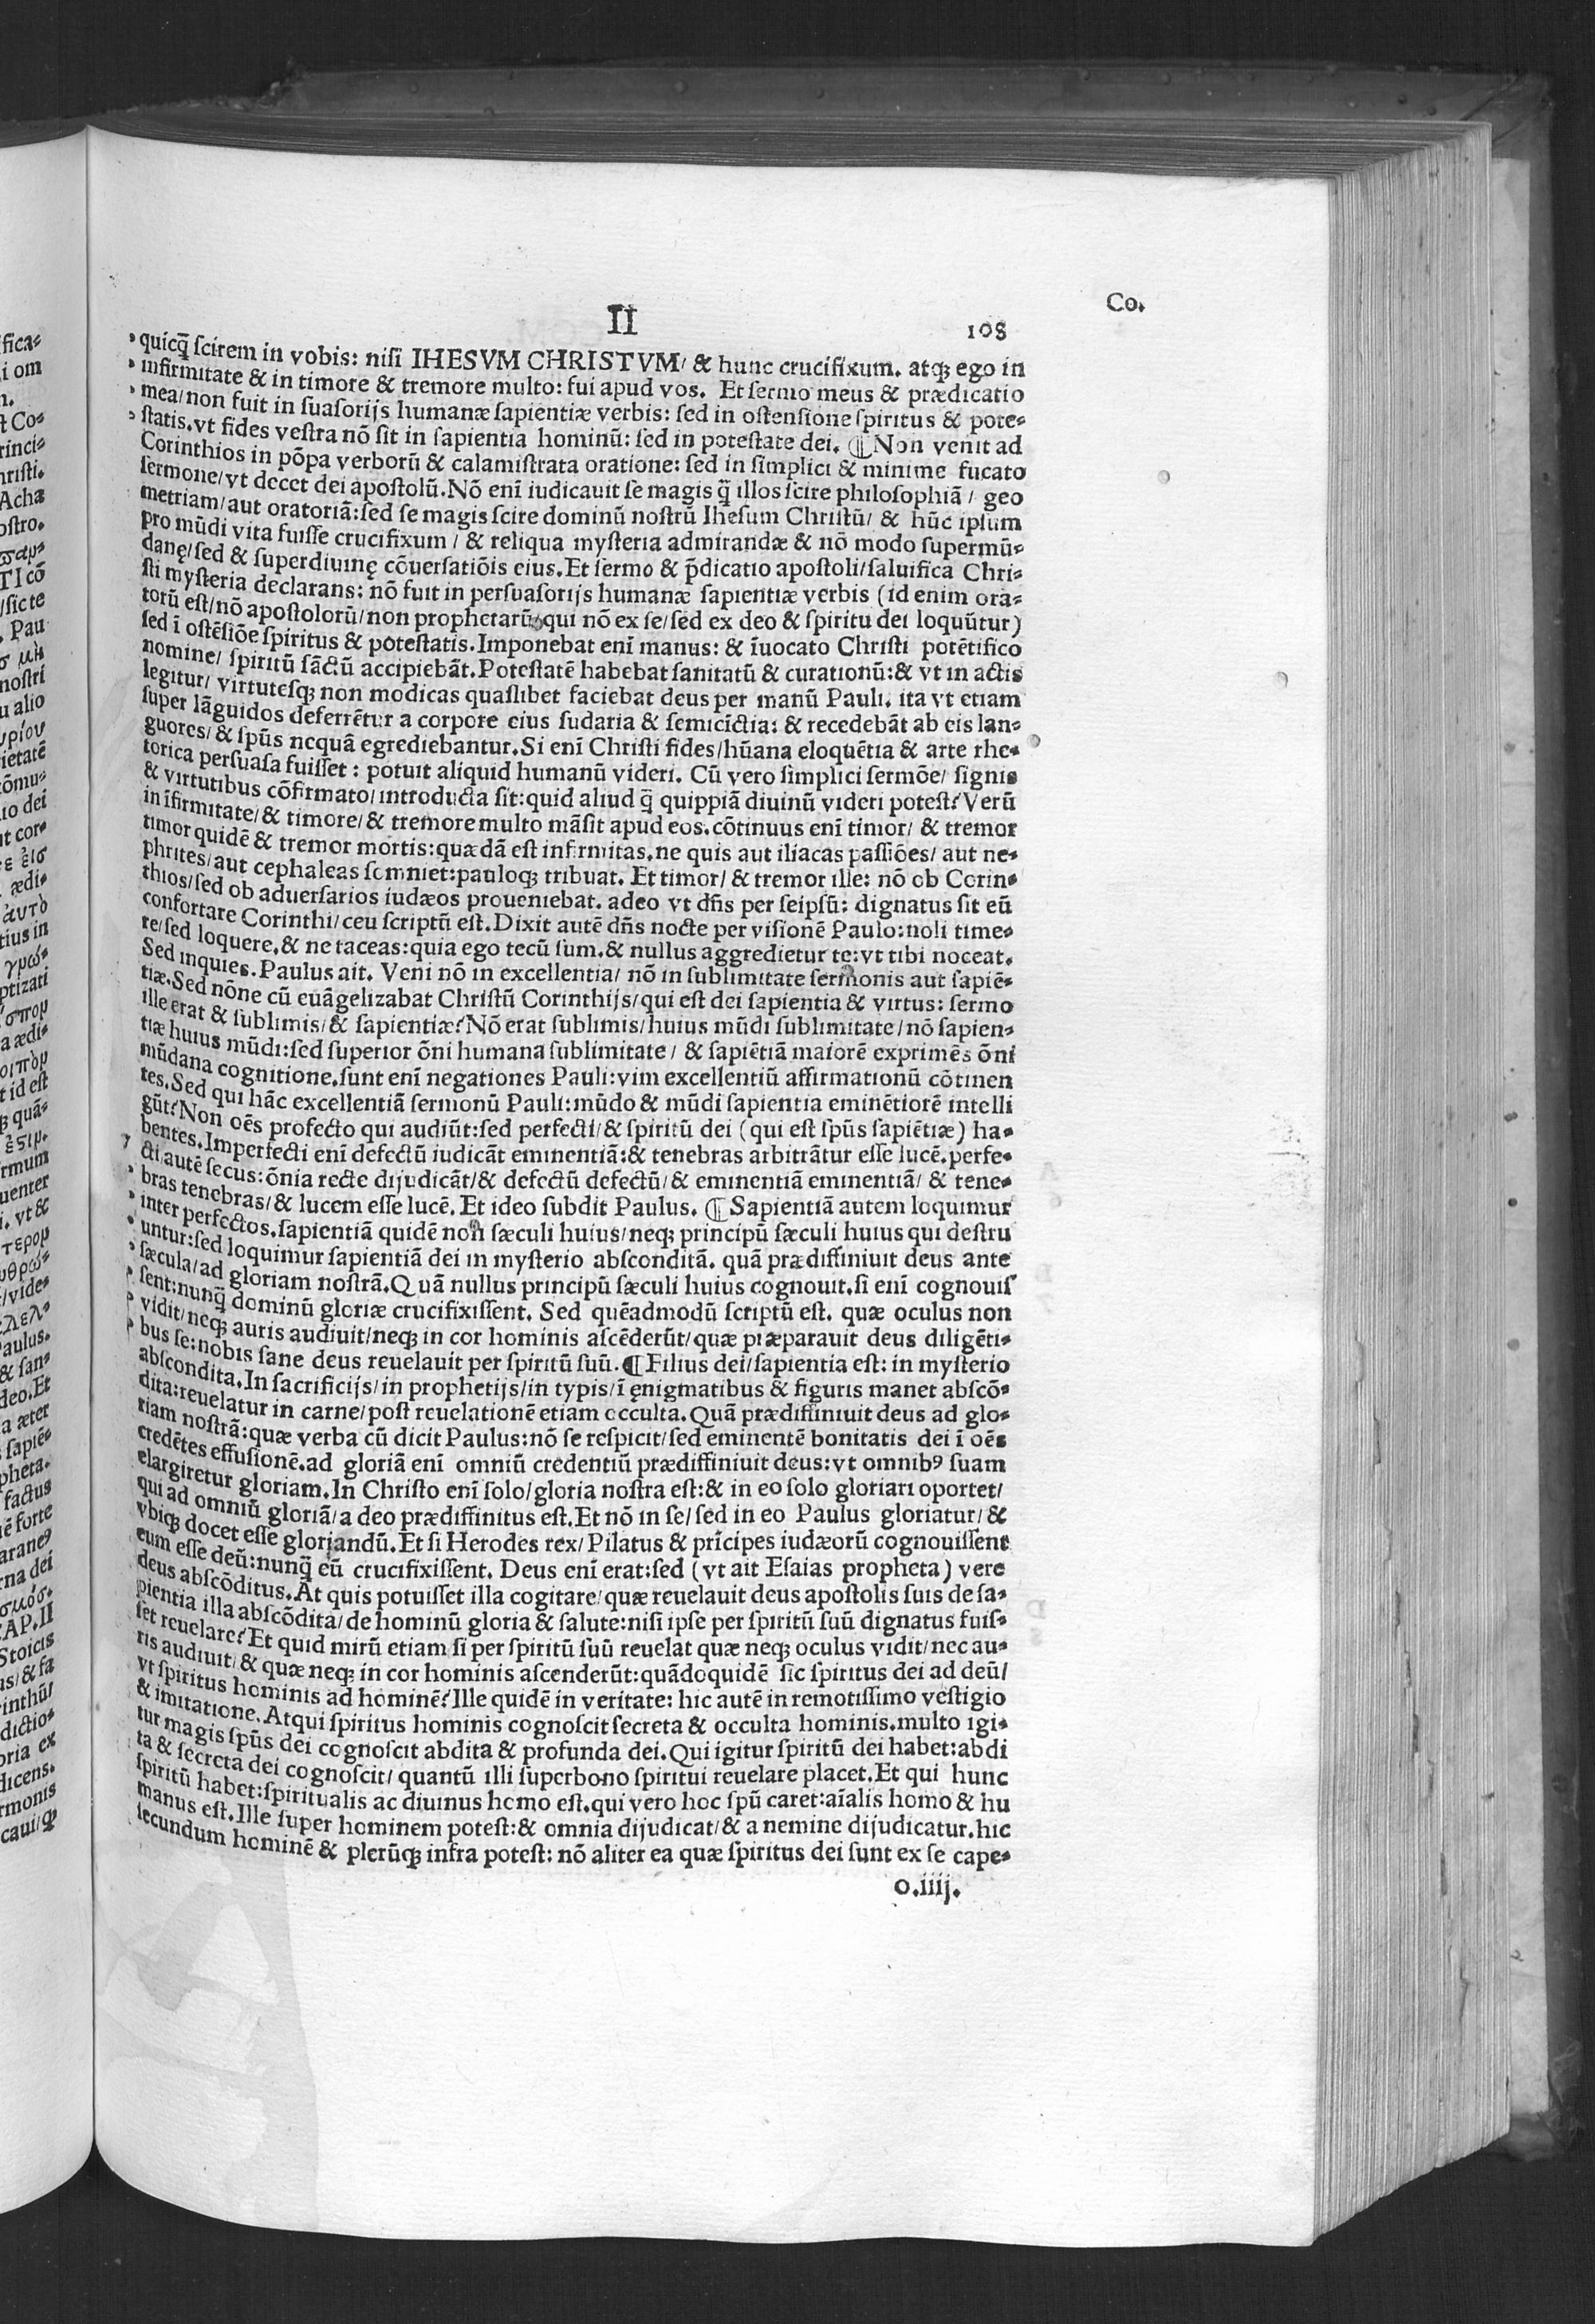 II
108
Co.
quicq̃ ſcirem in vobis: niſi IHESVM CHRISTVM/ & hunc crucifixum. atqꝫ ego in
infirmitate & in timore & tremore multo: fui apud vos. Et ſermo meus & prædicatio
mea/non fuit in ſuaſorijs humanæ ſapientiæ verbis: ſed in oſtenſione ſpiritus & pote⸗
ſtatis.vt fides veſtra nõ ſit in ſapientia hominũ: ſed in poteſtate dei. ¶Non venit ad
Corinthios in põpa verborũ & calamiſtrata oratione: ſed in ſimplici & minime fucato
ſermone/vt decet dei apoſtolũ.Nõ enĩ iudicauit ſe magis q̃ illos ſcire philoſophiã/ geo
metriam/aut oratoriã:ſed ſe magis ſcire dominũ noſtrũ Iheſum Chriſtũ/ & hũc ipſum
pro mũdi vita fuiſſe crucifixum/ & reliqua myſteria admirandæ & nõ modo ſupermũ⸗
danę/ſed & ſuperdiuinę cõuerſatiõis eius.Et ſermo & p̃dicatio apoſtoli/ſaluifica Chri⸗
ſti myſteria declarans: nõ fuit in perſuaſorijs humanæ ſapientiæ verbis (id enim ora⸗
torũ eſt/nõ apoſtolorũ/non prophetarũ qui nõ ex ſe/ſed ex deo & ſpiritu dei loquũtur)
ſed ĩ oſtẽſiõe ſpiritus & poteſtatis.Imponebat enĩ manus: & ĩuocato Chriſti potẽtifico
nomine/ ſpiritũ ſãctũ accipiebãt.Poteſtatẽ habebat ſanitatũ & curationũ:& vt in actis
legitur/ virtuteſqꝫ non modicas quaſlibet faciebat deus per manũ Pauli. ita vt etiam
ſuper lãguidos deferrẽtur a corpore eius ſudaria & ſemicĩctia: & recedebãt ab eis lan⸗
guores/ & ſpũs nequã egrediebantur.Si enĩ Chriſti fides/hũana eloquẽtia & arte rhe⸗
torica perſuaſa fuiſſet: potuit aliquid humanũ videri. Cũ vero ſimplici ſermõe/ ſignis
& virtutibus cõfirmato/introducta ſit:quid aliud q̃ quippiã diuinũ videri poteſt? Verũ
in ĩfirmitate/& timore/& tremore multo mãſit apud eos.cõtinuus enĩ timor/ & tremor
timor quidẽ & tremor mortis:quædã eſt infirmitas.ne quis aut iliacas paſſiões/ aut ne⸗
phrites/aut cephaleas ſomniet:pauloqꝫ tribuat. Et timor/ & tremor ille: nõ ob Corin⸗
thios/ſed ob aduerſarios iudæos proueniebat. adeo vt dñs per ſeipſũ: dignatus ſit eũ
confortare Corinthi/ceu ſcriptũ eſt.Dixit autẽ dñs nocte per viſionẽ Paulo:noli time⸗
re/ſed loquere.& ne taceas:quia ego tecũ ſum.& nullus aggredietur te:vt tibi noceat.
Sed inquies.Paulus ait. Veni nõ in excellentia/ nõ in ſublimitate ſermonis aut ſapiẽ⸗
tiæ.Sed nõne cũ euãgelizabat Chriſtũ Corinthijs/qui eſt dei ſapientia & virtus: ſermo
ille erat & ſublimis/& ſapientiæ?Nõ erat ſublimis/huius mũdi ſublimitate/nõ ſapien⸗
tiæ huius mũdi:ſed ſuperior õni humana ſublimitate/ & ſapiẽtiã maiorẽ exprimẽs õni
mũdana cognitione.ſunt enĩ negationes Pauli:vim excellentiũ affirmationũ cõtinen
tes.Sed qui hãc excellentiã ſermonũ Pauli:mũdo & mũdi ſapientia eminẽtiorẽ intelli
gũt?Non oẽs profecto qui audiũt:ſed perfecti/& ſpiritũ dei (qui eſt ſpũs ſapiẽtiæ) ha⸗
bentes.Imperfecti enĩ defectũ iudicãt eminentiã:& tenebras arbitrãtur eſſe lucẽ.perfe⸗
cti autẽ ſecus:õnia recte dijudicãt/& defectũ defectũ/& eminentiã eminentiã/ & tene⸗
bras tenebras/& lucem eſſe lucẽ. Et ideo ſubdit Paulus. ¶Sapientiã autem loquimur
inter perfectos.ſapientiã quidẽ non ſæculi huius/neqꝫ principũ ſæculi huius qui deſtru
untur:ſed loquimur ſapientiã dei in myſterio abſconditã. quã prædiffiniuit deus ante
ſæcula/ad gloriam noſtrã.Quã nullus principũ ſæculi huius cognouit.ſi enĩ cognouiſ
ſent:nunq̃ dominũ gloriæ crucifixiſſent. Sed quẽadmodũ ſcriptũ eſt. quæ oculus non
vidit/neqꝫ auris audiuit/neqꝫ in cor hominis aſcẽderũt/quæ præparauit deus diligẽti⸗
bus ſe:nobis ſane deus reuelauit per ſpiritũ ſuũ.¶Filius dei/ſapientia eſt: in myſterio
abſcondita.In ſacrificijs/in prophetijs/in typis/ĩ ęnigmatibus & figuris manet abſcõ⸗
dita:reuelatur in carne/poſt reuelationẽ etiam occulta.Quã prædiffiniuit deus ad glo⸗
riam noſtrã:quæ verba cũ dicit Paulus:nõ ſe reſpicit/ſed eminentẽ bonitatis dei ĩ oẽs
credẽtes effuſionẽ.ad gloriã enĩ omniũ credentiũ prædiffiniuit deus:vt omnibꝰ ſuam
elargiretur gloriam.In Chriſto enĩ ſolo/gloria noſtra eſt:& in eo ſolo gloriari oportet/
qui ad omniũ gloriã/a deo prædiffinitus eſt.Et nõ in ſe/ſed in eo Paulus gloriatur/ &
vbiqꝫ docet eſſe gloriandũ.Et ſi Herodes rex/Pilatus & prĩcipes iudæorũ cognouiſſent
eum eſſe deũ:nunq̃ eũ crucifixiſſent. Deus enĩ erat:ſed (vt ait Eſaias propheta) vere
deus abſcõditus.At quis potuiſſet illa cogitare/quæ reuelauit deus apoſtolis ſuis de ſa⸗
pientia illa abſcõdita/de hominũ gloria & ſalute:niſi ipſe per ſpiritũ ſuũ dignatus fuiſ⸗
ſet reuelare?Et quid mirũ etiam ſi per ſpiritũ ſuũ reuelat quæ neqꝫ oculus vidit/nec au⸗
ris audiuit/ & quæ neqꝫ in cor hominis aſcenderũt:quãdoquidẽ ſic ſpiritus dei ad deũ/
vt ſpiritus hominis ad hominẽ?Ille quidẽ in veritate: hic autẽ in remotiſſimo veſtigio
& imitatione.Atqui ſpiritus hominis cognoſcit ſecreta & occulta hominis.multo igi⸗
tur magis ſpũs dei cognoſcit abdita & profunda dei.Qui igitur ſpiritũ dei habet:abdi
ta & ſecreta dei cognoſcit/ quantũ illi ſuperbono ſpiritui reuelare placet.Et qui hunc
ſpiritũ habet:ſpiritualis ac diuinus homo eſt.qui vero hoc ſpũ caret:aĩalis homo & hu
manus eſt.Ille ſuper hominem poteſt:& omnia dijudicat/& a nemine dijudicatur.hic
ſecundum hominẽ & plerũqꝫ infra poteſt: nõ aliter ea quæ ſpiritus dei ſunt ex ſe cape⸗
o.iiij.